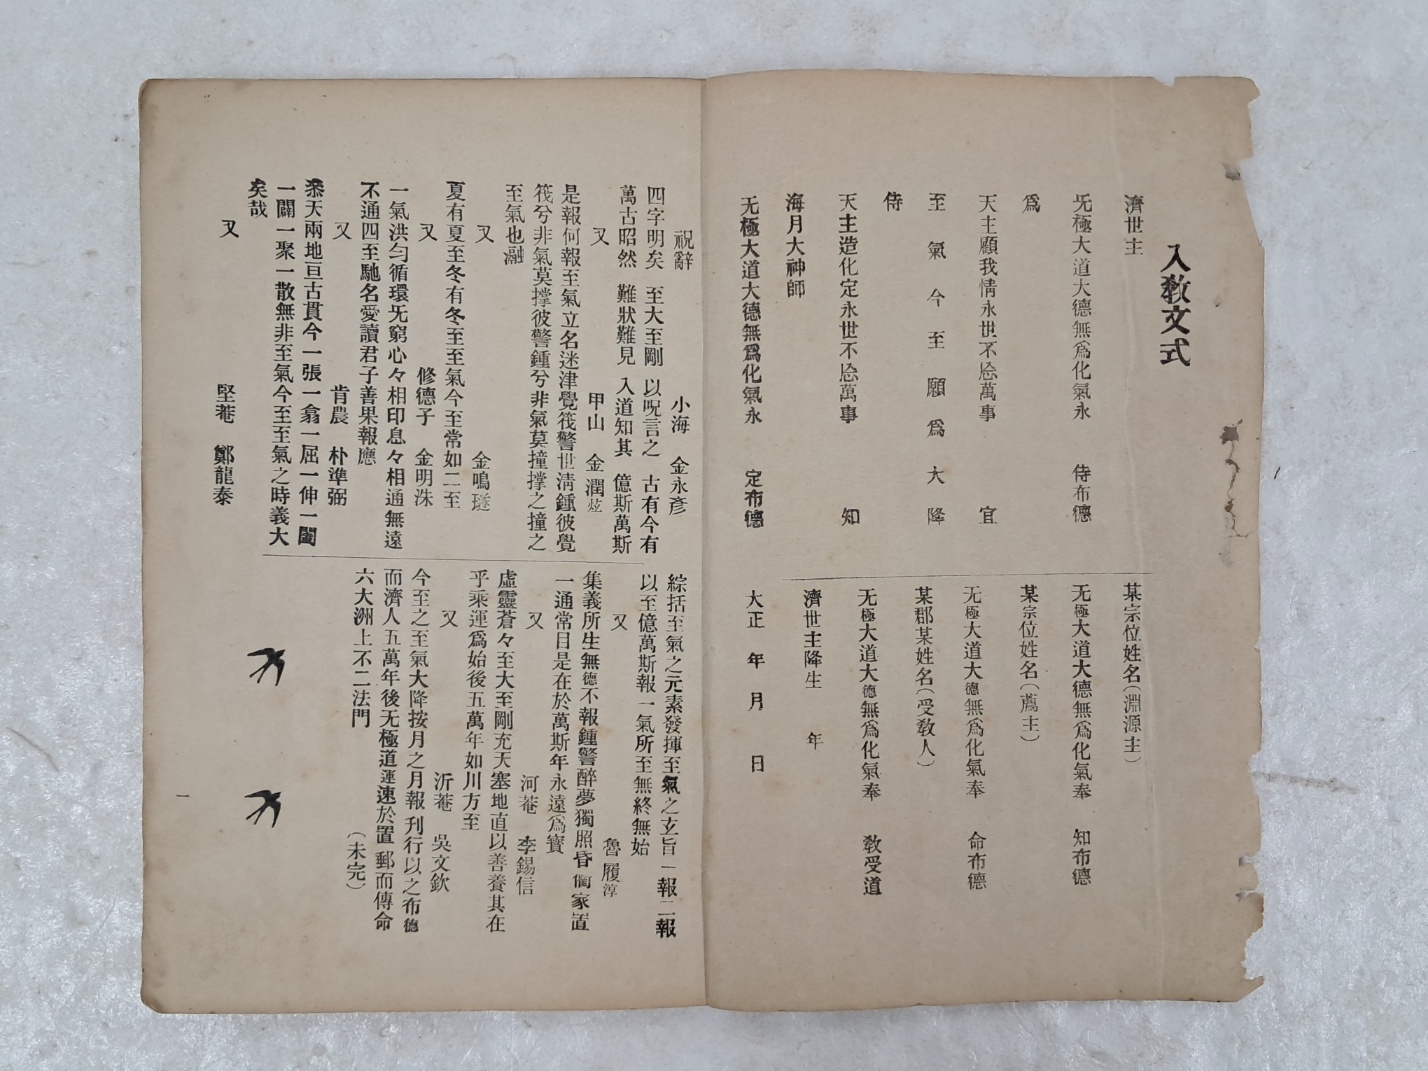 入教文式
濟世主
无極大道大德無爲化氣永 侍布德
爲
天主顧我情永世不忘萬事 宜
至氣今至願爲大降
侍
天主造化定永世不忘萬事 知
海月大神師
无極大道大德無爲化氣永 定布德
某宗位姓名(淵源主)
无極大道大德無爲化氣奉 知布德
某宗位姓名(薦主)
无極大道大德無爲化氣奉 命布德
某郡某姓名(受教人)
无極大道大德無爲化氣奉 教受道
濟世主降生 年
大正 年 月 日
祝辭 小海 金永彥
四字明矣 至大至剛 以呪言之 古有今有
萬古昭然 難狀難見 入道知其 億斯萬斯
又 甲山 金潤炫
是報何報至氣立名迷津覺筏警世淸鍾彼覺
筏兮非氣莫撑彼警鍾兮非氣莫撞撑之撞之
至氣也融
又 金鳴璲
夏有夏至冬有冬至至氣今至常如二至
又 修德子 金明洙
一氣洪匀循環无窮心々相印息々相通無遠
不通四至馳名愛讀君子善果報應
又 肯農 朴準弼
叅天兩地亘古貫今一張一翕一屈一伸一闔
一闢一聚一散無非至氣今至至氣之時義大
矣哉
又 堅菴 鄭龍泰
綜括至氣之元素發揮至氣之玄旨一報二報
以至億萬斯報一氣所至無終無始
又 魯履淳
集義所生無德不報鍾警醉夢獨照昏衢家置
一通常目是在於萬斯年永遠爲寶
又 河菴 李錫信
虛靈蒼々至大至剛充天塞地直以善養其在
乎乘運爲始後五萬年如川方至
又 沂菴 吳文欽
今至之至氣大降按月之月報刊行以之布德
而濟人五萬年後无極道運速於置郵而傳命
六大洲上不二法門 (未完)
一